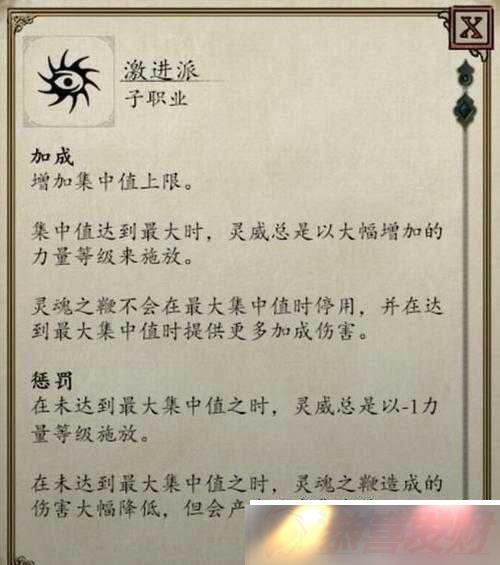 激进派
子职业
加成
增加集中值上限。
集中值达到最大时，灵威总是以大幅增加的
力量等级来施放。
灵魂之鞭不会在最大集中值时停用，并在达
到最大集中值时提供更多加成伤害。
惩罚
在未达到最大集中值之时，灵威总是以-1力
量等级施放。
在未达到最大集中值之时，灵魂之鞭造成的
伤害大幅降低，但会产